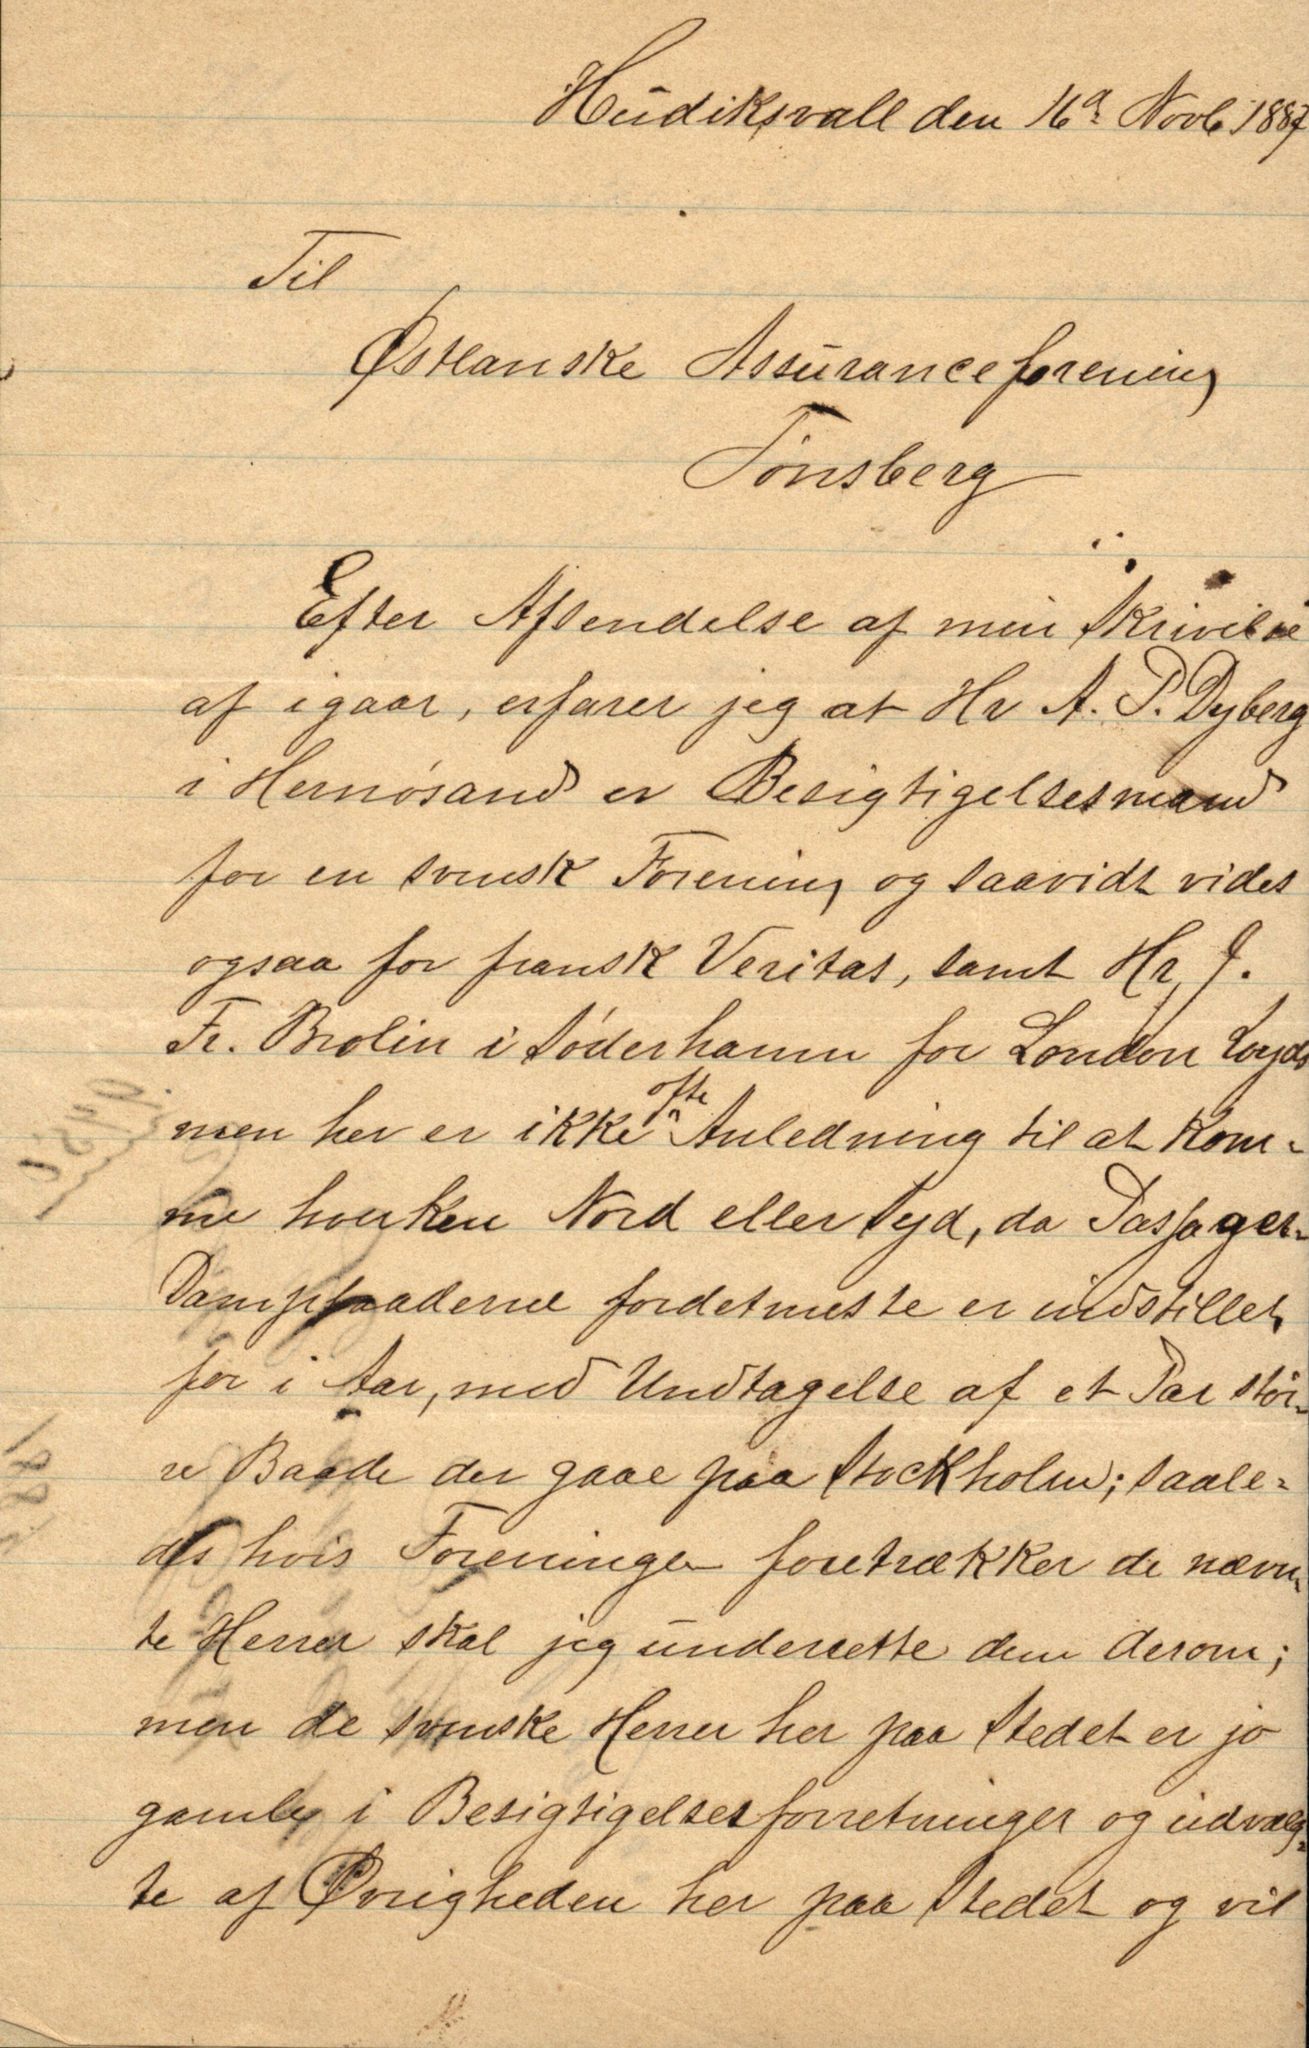 Hudiksvall den 16de Novb 1887
Til
Østlanske Assuranceforening
Tønsberg
Efter Afsendelse af min Skrivelse
af igaar, erfarer jeg at Hr A. P. Dyberg
i Hernøsand er Besigtigelsesmand
for en svensk Forening og saavidt vides
ogsaa for fransk Veritas, samt Hr J.
Fr. Brolin i Søderhamn for London Loyds
men her er ikke ofte Anledning til at kom-
me hverken Nord eller Syd, da Passager-
Dampbaaderne fordetmeste er indstillet
for i Aar, med Undtagelse af et Par stør-
re Baade der gaae paa Stockholm; saale-
des hvis Foreningen foretrækker de nævn-
te Herrer skal jeg underrette dem derom;
men de svenske Herrer her paa Stedet er jo
gamle i Besigtigelsesforretninger og udvalg-
te af Øvrigheden her paa Stedet og vil